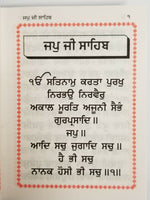 ਜਪੁ ਜੀ ਸਾਹਿਬ ੧
ਜਪੁ ਜੀ ਸਾਹਿਬ
ੴ ਸਤਿਨਾਮੁ ਕਰਤਾ ਪੁਰਖੁ
ਨਿਰਭਉ ਨਿਰਵੈਰੁ
ਅਕਾਲ ਮੂਰਤਿ ਅਜੂਨੀ ਸੈਭੰ
ਗੁਰਪ੍ਰਸਾਦਿ ॥
ਜਪੁ ॥
ਆਦਿ ਸਚੁ ਜੁਗਾਦਿ ਸਚੁ ॥
ਹੈ ਭੀ ਸਚੁ
ਨਾਨਕ ਹੋਸੀ ਭੀ ਸਚੁ ॥੧॥